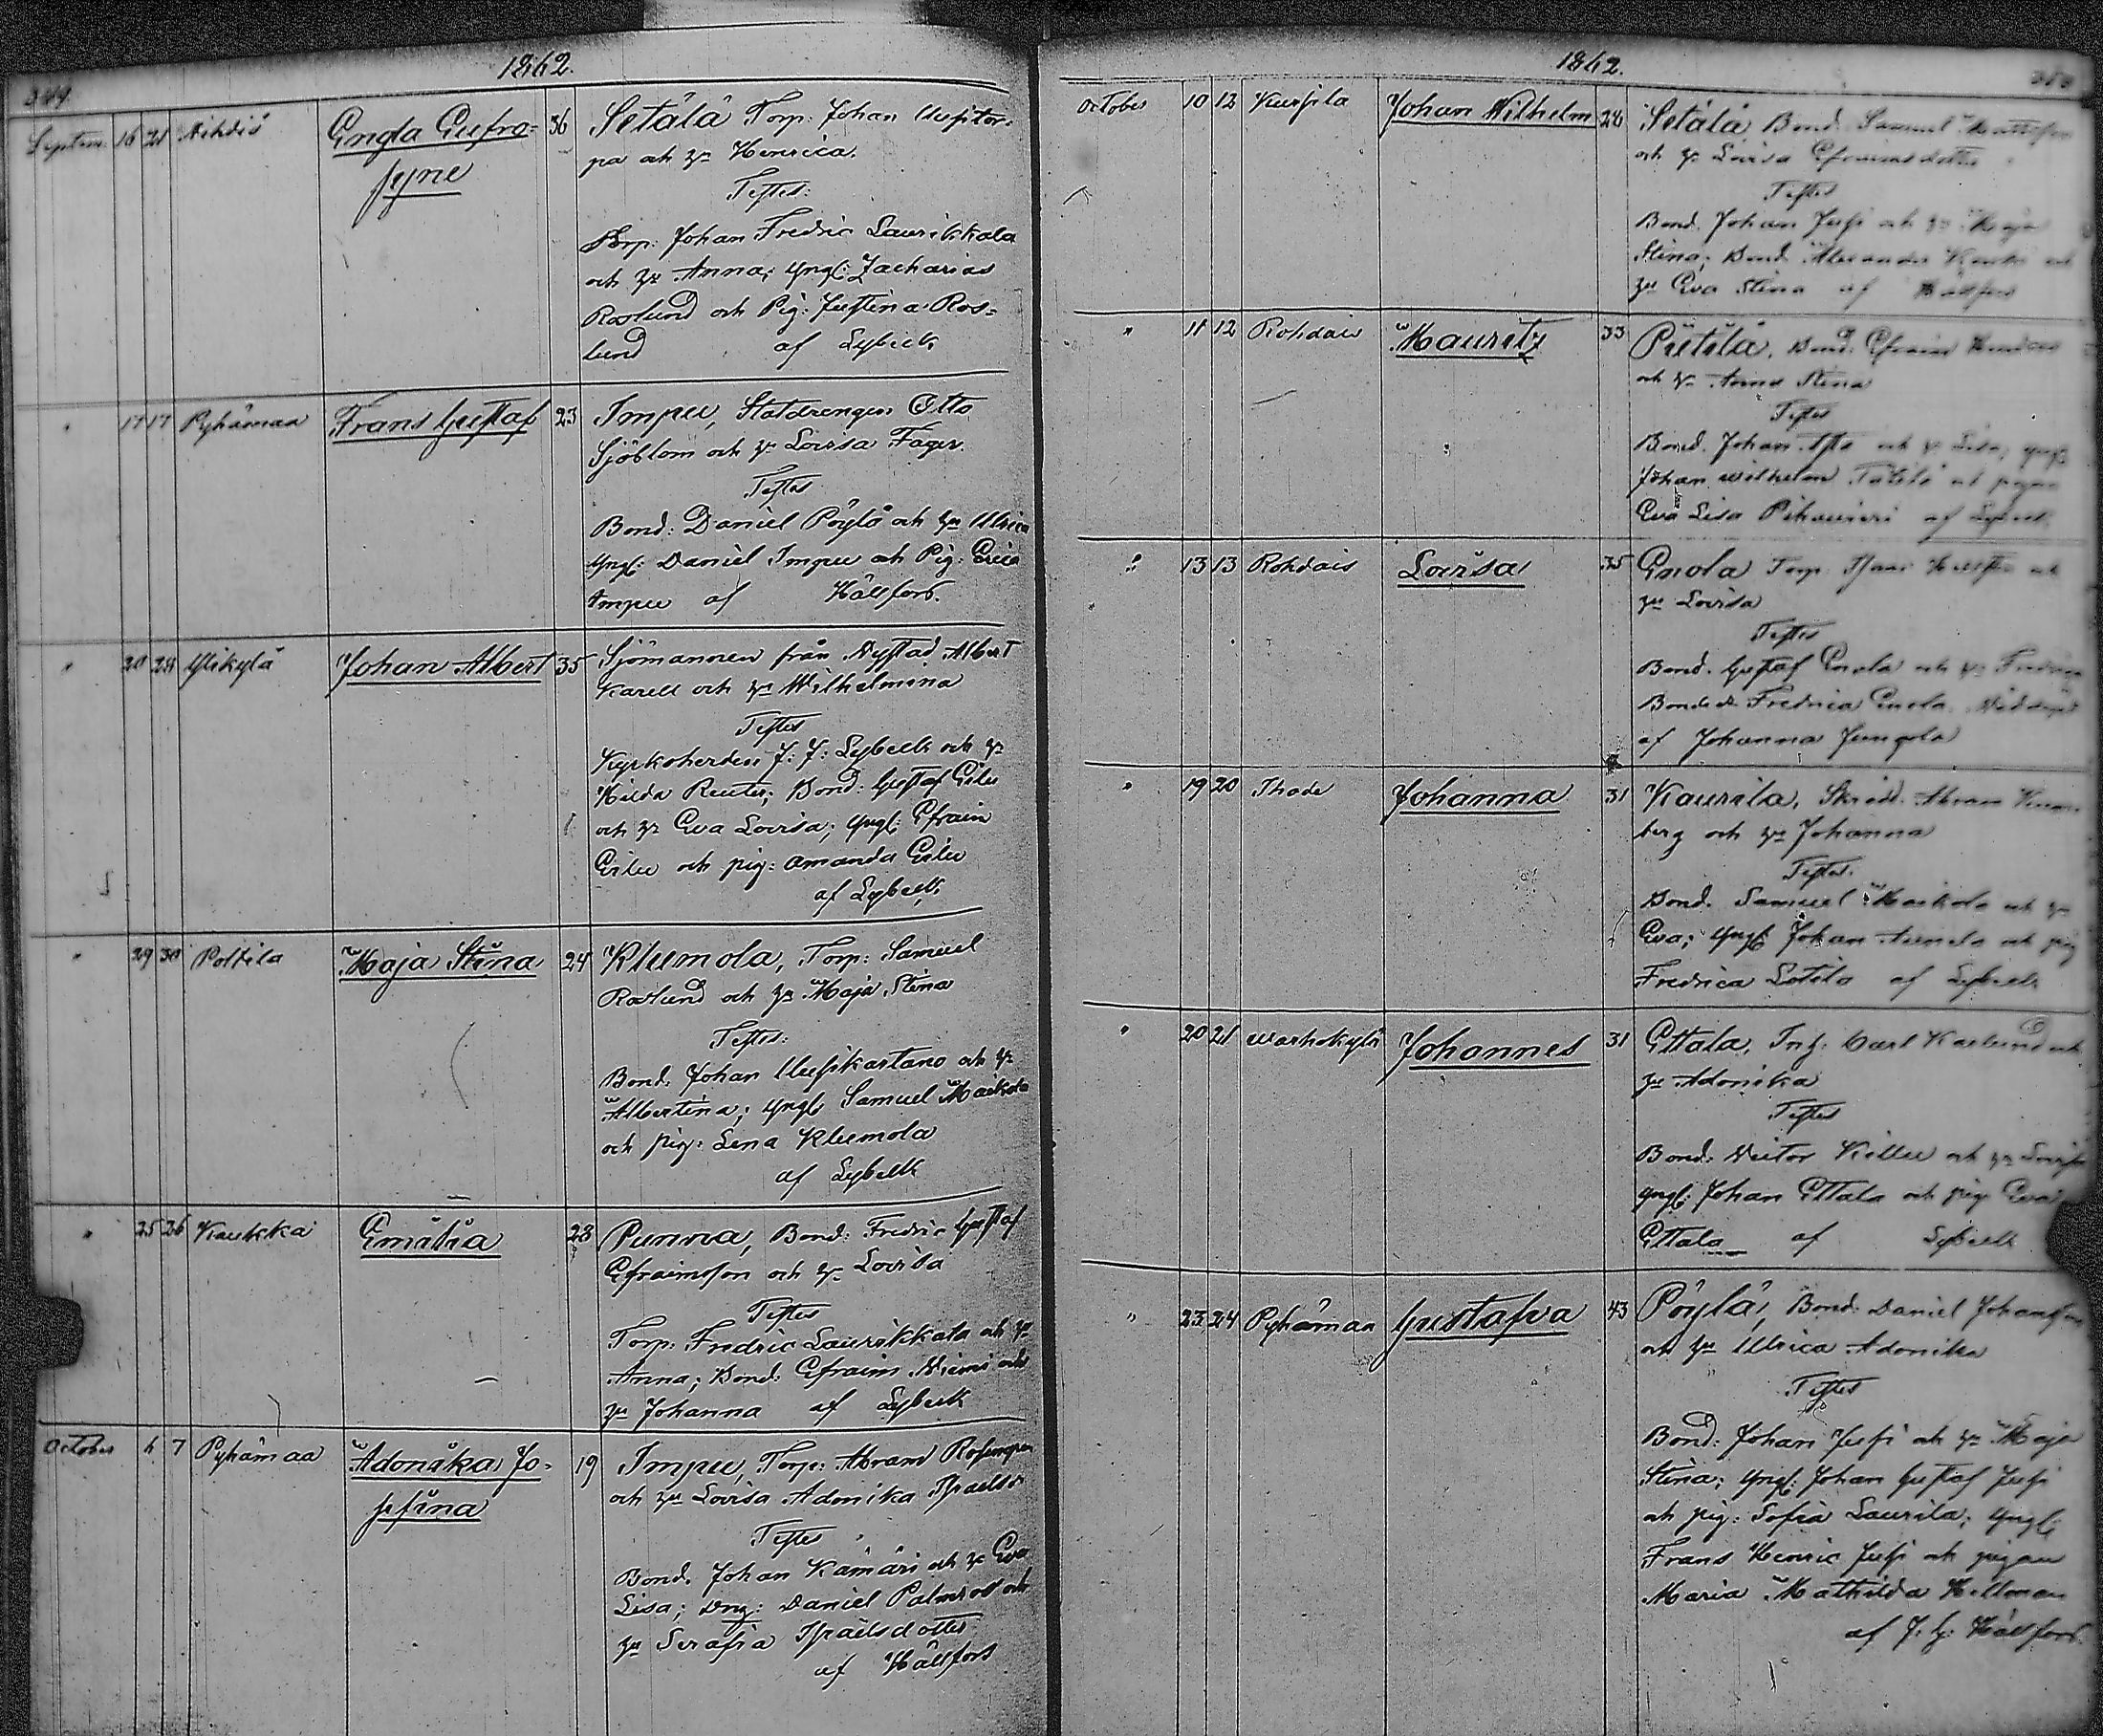 1862.
349.
Septem. 16 21 Aihdis Engla Eufro= 36 Setälä Torp: Johan Uusitor-
syne pa och hu Henrica.
Testes:
Torp: Johan Fredric Laurikkala
och hu Anna; Yngl: Zacharias
Roslund och Pig: Justina Ros=
lund af Lybeck
" 17 17 Pyhämaa Frans Gustaf 23 Impu, Statdrengen Otto
Sjöblom och hu Lovisa Fager.
Testes
Bond: Daniel Pöylä och hu Ulrica
Yngl: Daniel Impu och Pig: Erica
Impu af Hällfors.
" 20 28 Ylikylä Johan Albert 35 Sjömannen från Nystad Albert
Karell och hu Wilhelmina
Testes
Kyrkoherden J: J: Lybeck och hu
Hilda Reuter; Bond: Gustaf Eilu
och hu Eva Lovisa; Yngl: Efraim
Eilu och pig: Amanda Eilu
af Lybeck
" 29 30 Polttila Maja Stina 24 Klemola, Torp: Samuel
Roslund och hu Maja Stina
Testes:
Bond. Johan Uusikartano och hu
Albertina; Yngl: Samuel Maikola
och pig: Lena Klemola
af Lybeck
" 25 26 Kaukka Emilia 28 Punna, Bond: Fredric Gustaf
Efraimsson och hu Lovisa
Testes
Torp: Fredric Laurikkala och hu
Anna; Bond: Efraim Niemi och
hu Johanna af Lybeck
October 6 7 Pyhämaa Adonika Jo- 19 Impu, Torp: Abram Rosengren
sefina och hu Lovisa Adonika Israelsdr
Testes
Bond. Johan Kämäri och hu Eva
Lisa; Drg: Daniel Palmroos och
hu Serafia Israelsdotter
af Hällfors
1862.
October 10 12 Kursila Johan Wilhelm 28 Setälä Bond. Samuel Mattsson
och hu Lovisa Efraimsdotter
Testes
Bond. Johan Jussi och hu Maja
Stina; Bond Alexander och
hu Eva Stina af Hällfors
" 11 12 Rohdais Mauritz 33 Pietilä, Bond. Efraim
och hu Anna Stina
Testes
Bond. Johan och hu Lisa; Yngl
Johan Wilhelm och pigan
Eva Lisa af Lybeck
" 13 13 Rohdais Lovisa 35 Enola Torp. och
hu Lovisa
Testes
Bond. Gustaf Enola och hu Fredrica
Bonded. Fredrica Enola. Nöddöpt
af Johanna Junqola
" 19 20 Ihode Johanna 31 Kaurila, Skrädd. Abram
berg och hu Johanna
Testes.
Bond. Samuel Maikola och hu
Eva; Yngl Johan Aunela och pig
Fredrica Sotila af Lybeck
" 20 21 Warhokylä Johannes 31 Ettala, Inh: Carl Karlund och
hu Adonika
Testes
Bond. Victor Killu och hu Lovisa
Yngl: Johan Ettala och pig: Eva
Ettala af Lybeck
" 23 24 Pyhämaa Gustafva 43 Pöylä, Bond: Daniel Johansson
och hu Ulrica Adonika
Testes
Bond: Johan Jussi och hu Maja
Stina; Yngl: Johan Gustaf Jussi
och pig: Sofia Laurila; Yngl:
Frans Henric Jussi och pigan
Maria Mathilda Hellman
af J. G. Hällfors.